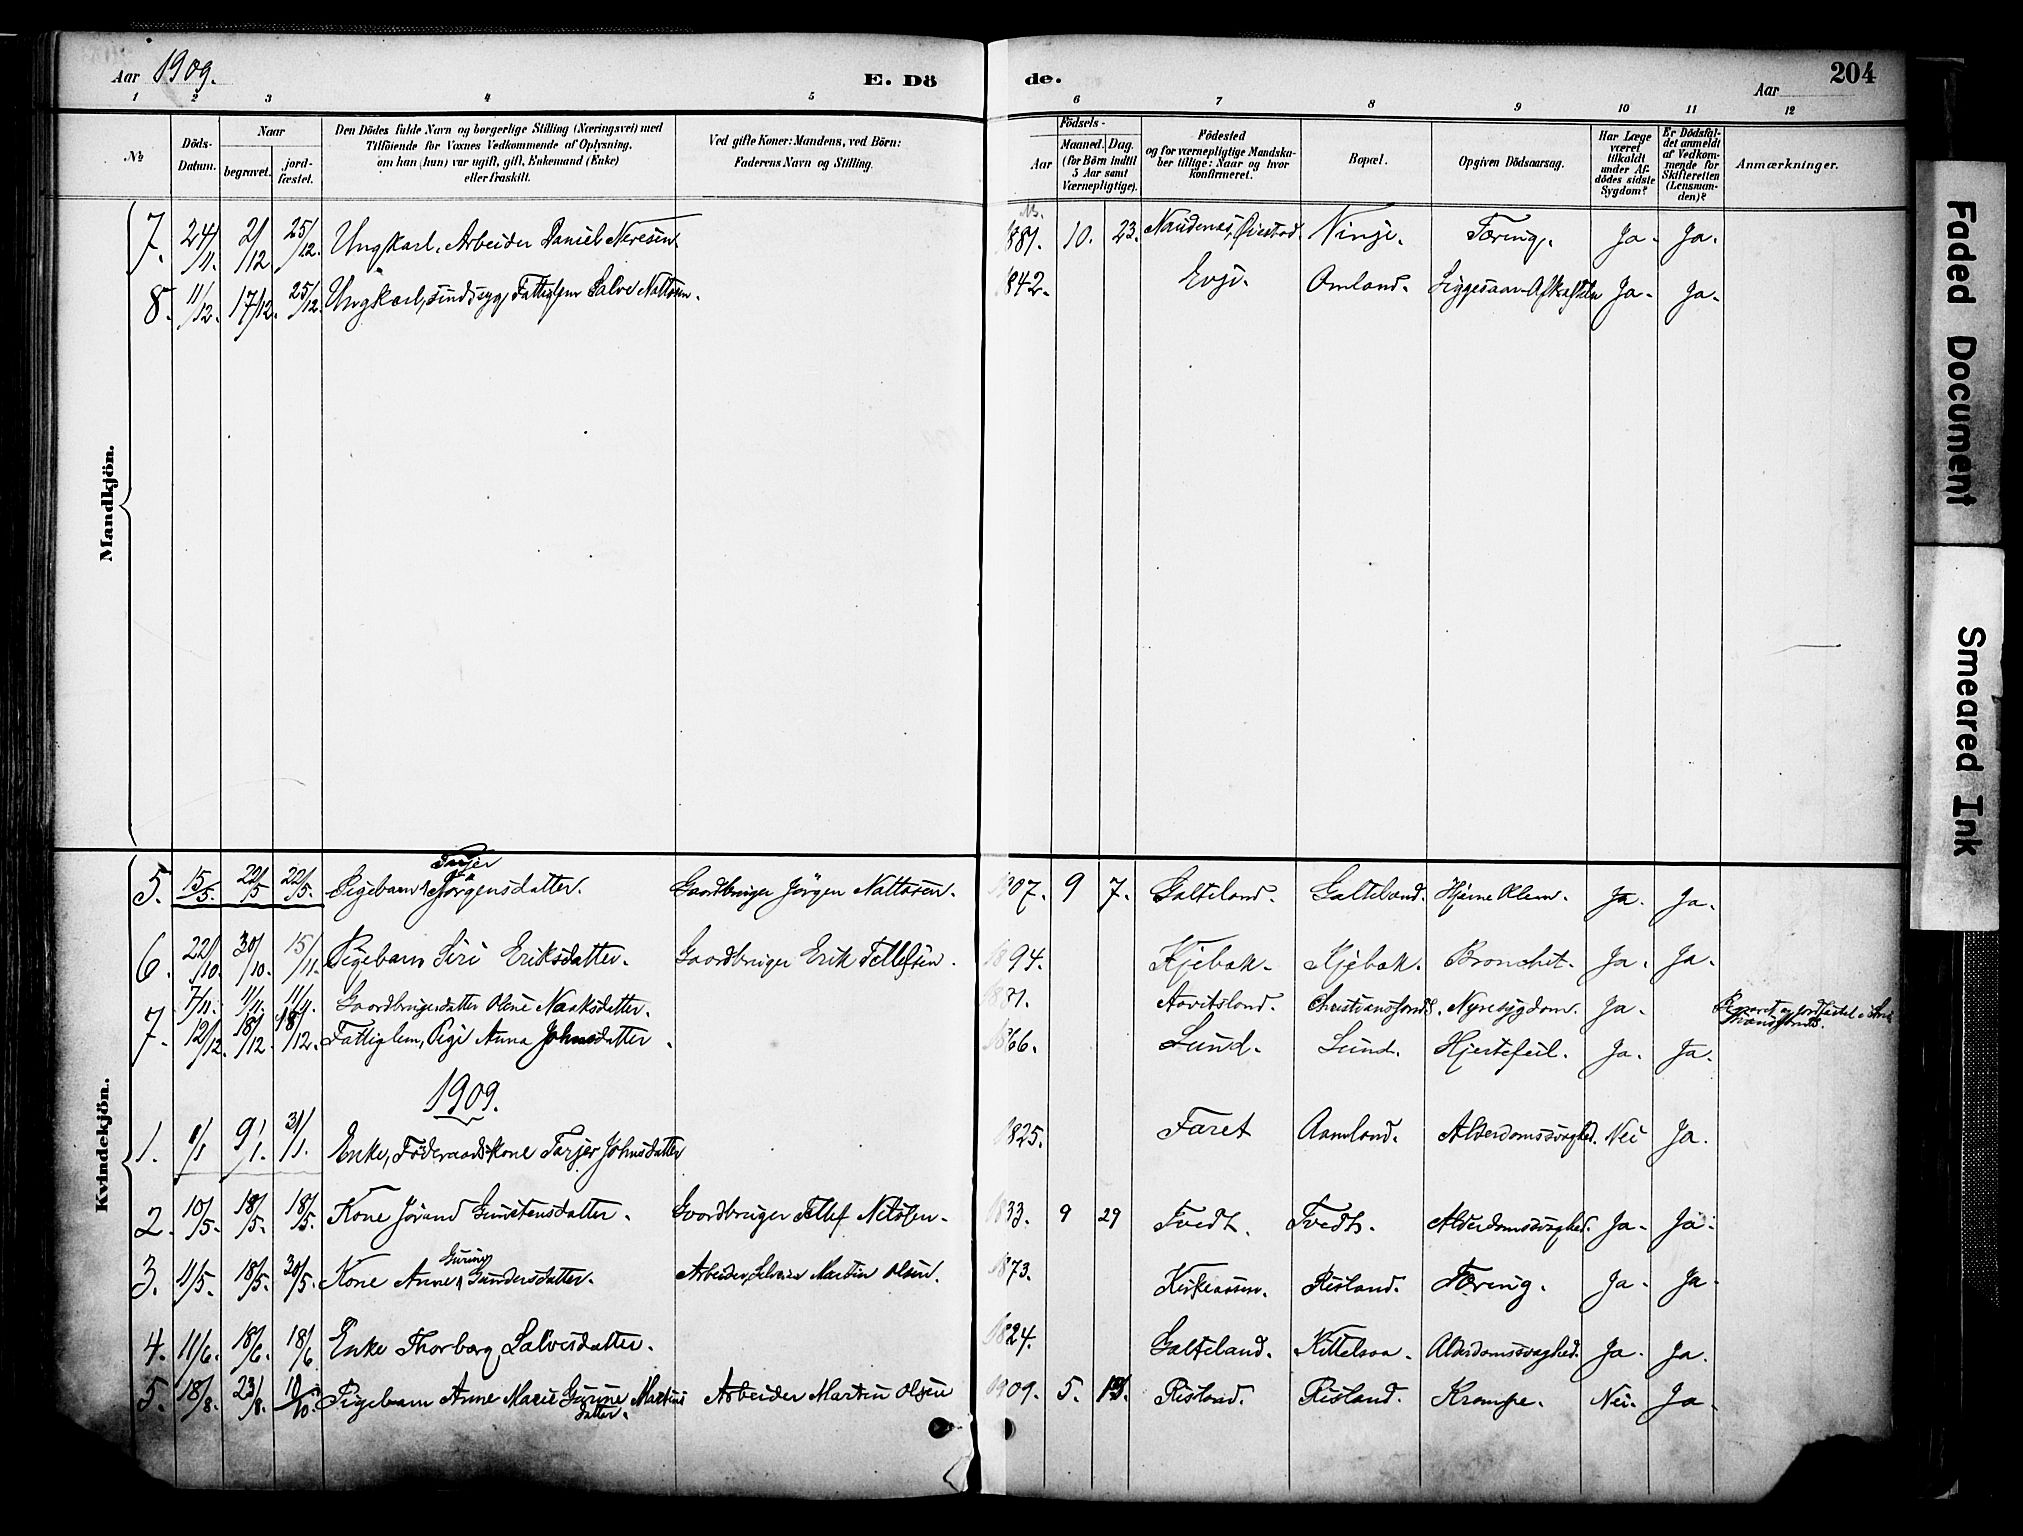 Aar 1909. E. Dö de. Aar 204
1 2 3 4 5 6 7 8 9 10 11 12
No Döds-Datum. Naar begravet. jord-fæstet. Den Dödes fulde Navn og borgerlige Stilling (Næringsvei) med Tilföiende for Voxnes Vedkommende af Oplysning, om han (hun) var ugift, gift, Enkemand (Enke) eller fraskilt. Ved gifte Koner: Mandens, ved Börn: Faderens Navn og Stilling. Födsels- Aar Maaned. Dag. (for Börn indtil 5 Aar samt Værnepligtige). Födested og for værnepligtige Mandskaber tillige: Naar og hvor konfirmeret. Bopæl. Opgiven Dödsaarsag. Har Læge været tilkaldt under Afdödes sidste Sygdom? Er Dödsfaldet anmeldt af Vedkommende for Skifteretten (Lensmanden)? Anmærkninger.
Mandkjön.
7. 24/11. 2/12 25/12. Ungkarl, Arbeider Daniel Neresen 1881. 10. 23. Øiestad. Ninje. Tæring. Ja. Ja.
8. 11/12. 17/12. 25/12. Ungkarl, sindssyg, Fattiglem Salve Nattosen. 1842. Evje. Omland. Liggesaar Ja. Ja.
Kvindekjön.
Terjer
5. 15/5. 22/5 22/5. Pigebarn Jørgensdatter. Gaardbruger Jörgen Nattosen. 1907. 9 7. Galteland. Galteland. Ja. Ja.
6. 22/10. 30/10. 15/11. Pigebarn Siri Eriksdatter. Gaardbruger Erik Tellefsen. 1894. Kjebak. Kjebak. Bronchit. Ja. Ja.
7/11. 11/11. 11/11. Gaardbrugerdatter Olene Naaksdatter. 1881. Aavitsland. Christianssand. Nyresygdom. Ja.
7. 12/12. 18/12. 18/12. Fattiglem, Pige Anna Johnsdatter. 1866. Lund. Lund. Hjertefeil. Ja. Ja.
1909.
1. 1/1 9/1. 31/1. Enke, Föderaadskone Tarjer Johnsdatter 1825. Faret Aamland. Alderdomssvaghed. Nei Ja.
2. 10/5. 18/5. 18/5. Kone Jörand Gunstensdatter. Gaardbruger Tellef Nilssen. 1833. 9 29 Tvedt. Tvedt. Alderdomssvaghed. Ja. Ja.
Guring
3. 11/5. 18/5. 30/5. Kone Anne Gundersdatter. Arbeider, Martin Olsen. 1873. Risland. Tæring. Ja. Ja.
4. 11/6. 18/6. 18/6 Enke Thorborg Salvesdatter. 1824. Galteland. Kittelsaa. Alderdomssvaghed. Ja. Ja.
5. 18/8. 23/8. 10/10. Pigebarn Anne Marie Gurine Martins datter. Arbeider Martin Olsen 1909. 5. Risland. Risland. Krampe. Nei. Ja.
Faded Document
Smeared Ink